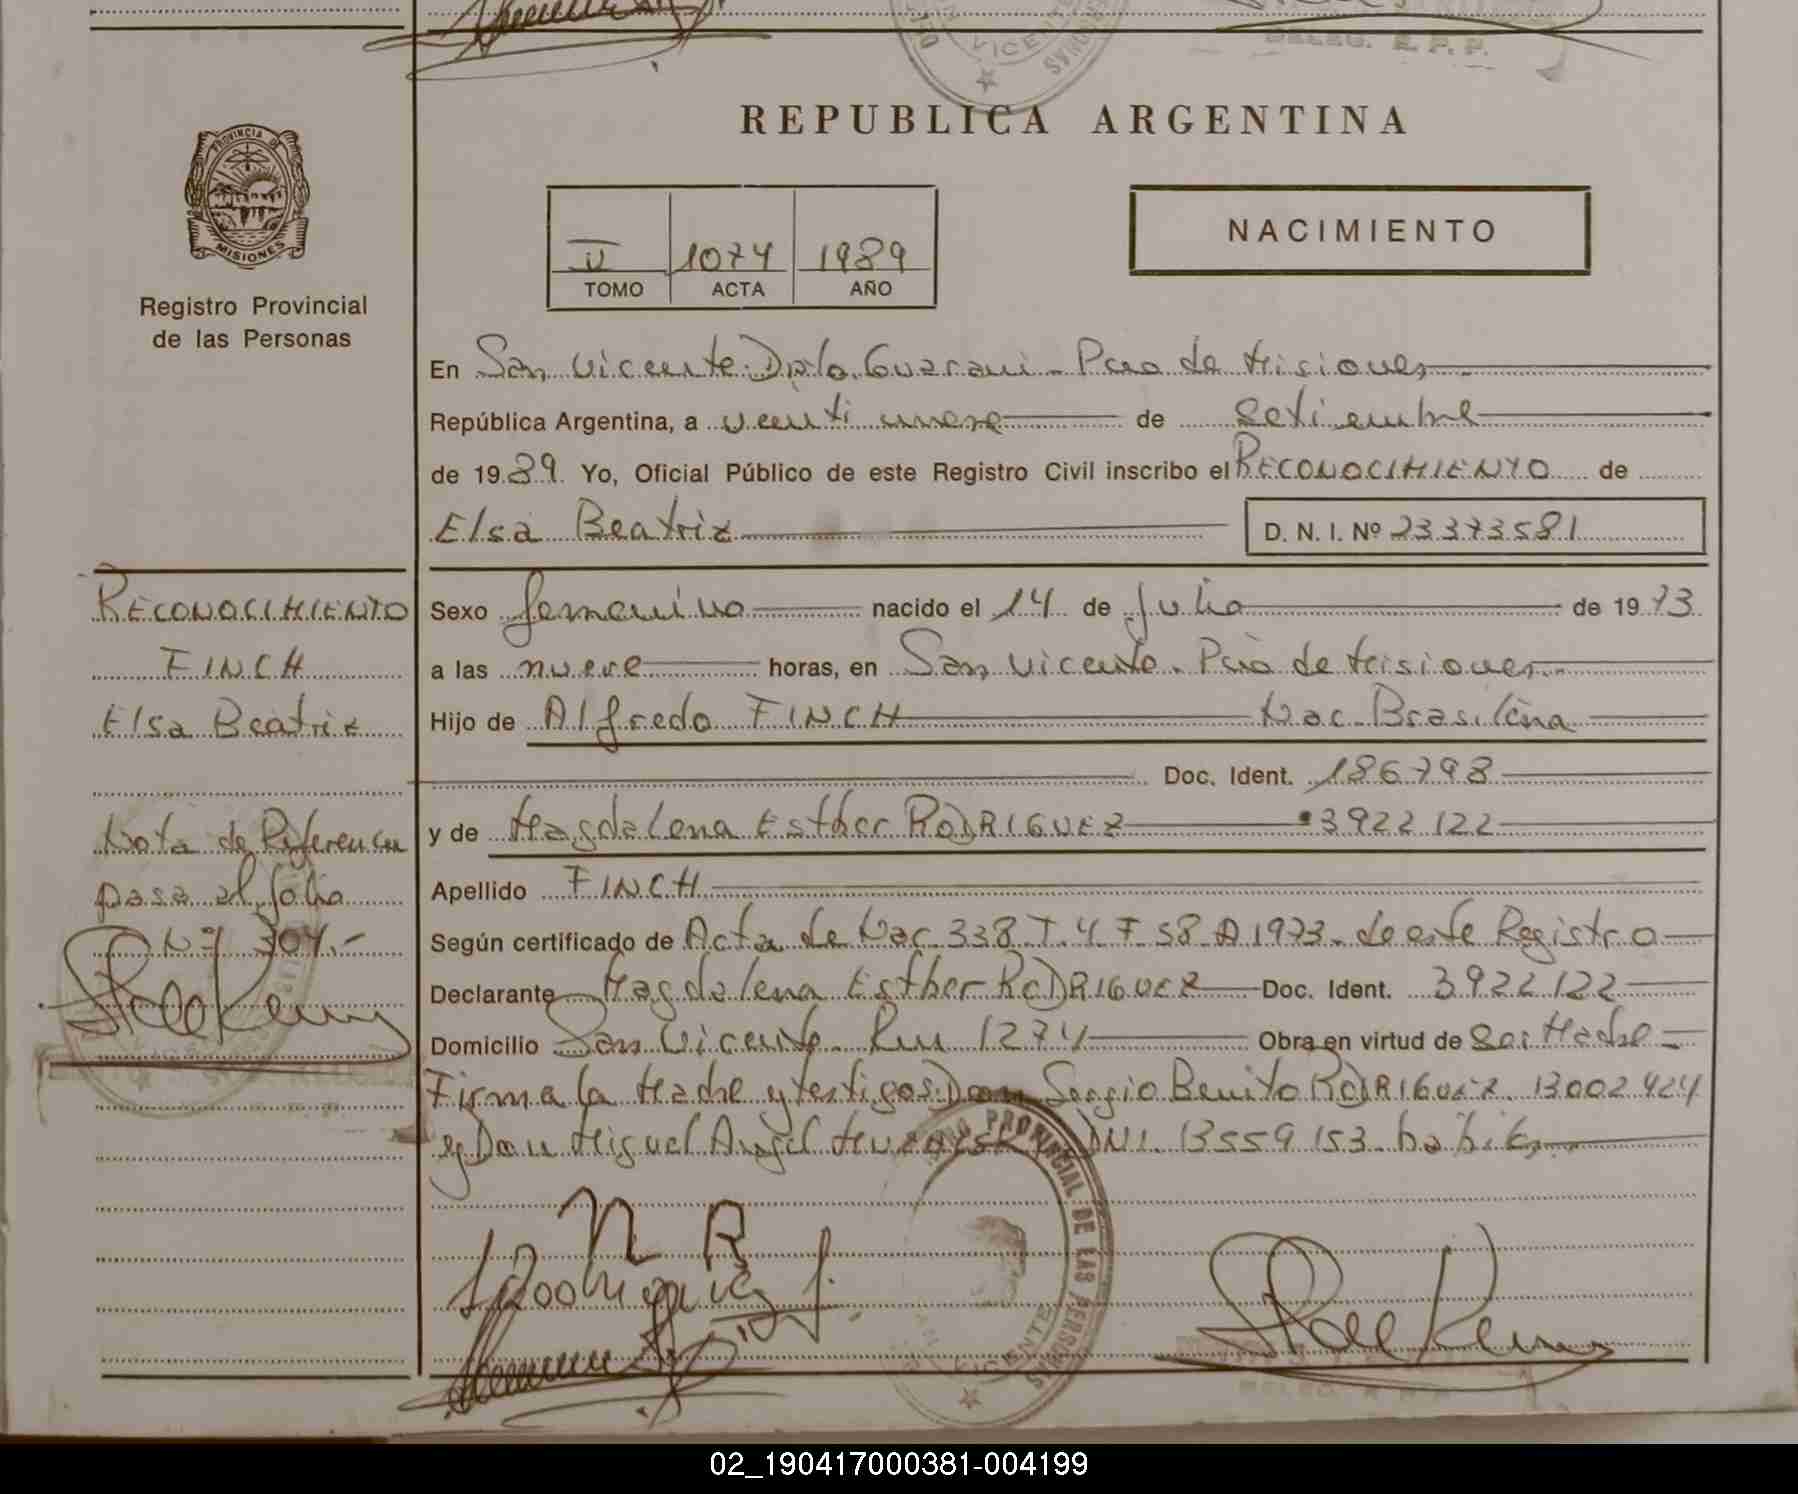 DELEG. R. P. P.
REPUBLICA ARGENTINA
PROVINCIA DE MISIONES
Registro Provincial
de las Personas
II 1074 1989
TOMO ACTA AÑO
NACIMIENTO
En San Vicente Dpto. Guarani - Pcia de Misiones
República Argentina, a veinti nueve de setiembre
de 1989. Yo, Oficial Público de este Registro Civil inscribo el RECONOCIMIENTO de
Elsa Beatriz D. N. I. Nº 23373581
RECONOCIMIENTO
FINCH
Elsa Beatriz
Nota de Referencia
pasa al folio
Nº 304.-
Sexo femenino nacido el 14 de Julio de 1973
a las nueve horas, en San Vicente. Pcia de Misiones
Hijo de Alfredo FINCH Nac. Brasileña
Doc. Ident. 186798
y de Magdalena Esther RODRIGUEZ 3922122
Apellido FINCH
Según certificado de Acta de Nac. 338 T. 4 F 58 A 1973 - de este Registro
Declarante Magdalena Esther RODRIGUEZ Doc. Ident. 3922122
Domicilio San Vicente Ruu 1274 Obra en virtud de Ser Madre
Firma la Madre y testigos: Don Sergio Benito RODRIGUEZ. 13002424
y Don Miguel Angel DNI. 13559153
N R
PROVINCIAL DE LAS PERSONAS
VICENTE
02_190417000381-004199